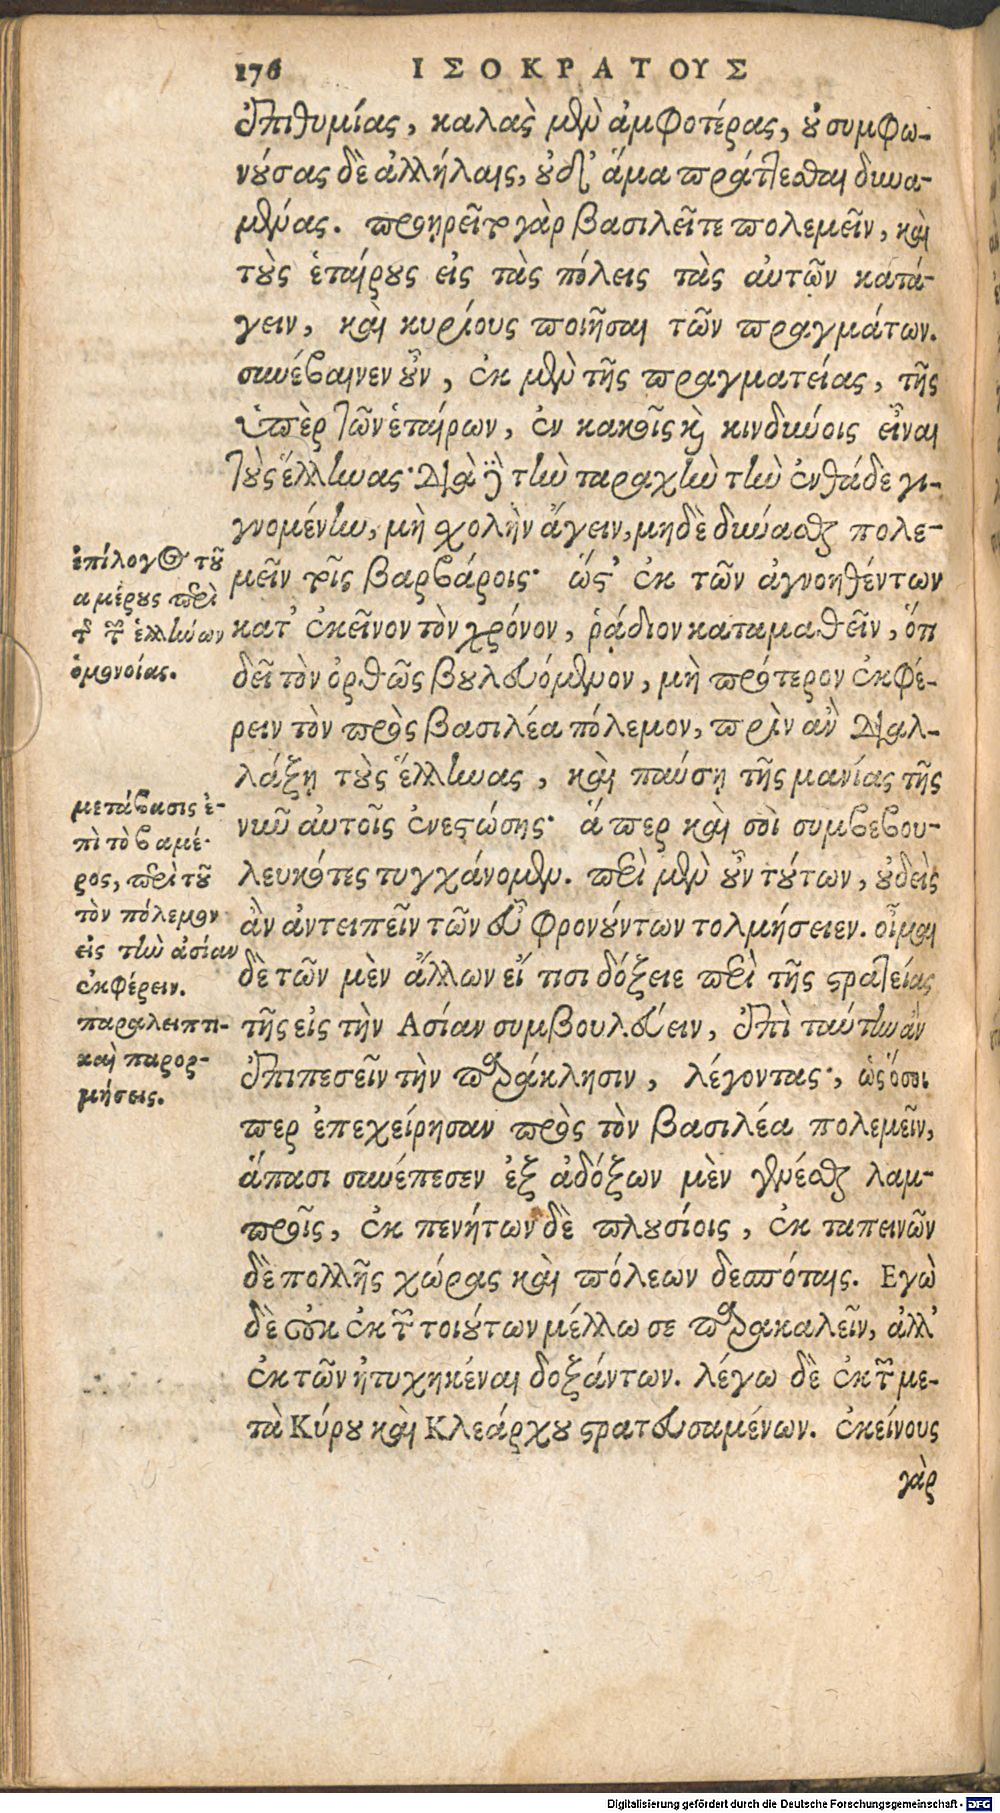 176 ΙΣΟΚΡΑΤΟΥΣ
ἐπιθυμίας, καλὰς μὲν ἀμφοτέρας, οὐ συμφω-
νούσας δὲ ἀλλήλαις, οὐδ' ἅμα πράττεσθαι δυνα-
μένας. προῃρεῖτο γὰρ βασιλεῖ τε πολεμεῖν, καὶ
τοὺς ἑταίρους εἰς τὰς πόλεις τὰς αὐτῶν κατά-
γειν, καὶ κυρίους ποιῆσαι τῶν πραγμάτων.
συνέβαινεν οὖν, ἐκ μὲν τῆς πραγματείας, τῆς
ὑπὲρ τῶν ἑταίρων, ἐν κακοῖς καὶ κινδύνοις εἶναι
τοὺς ἕλληνας· διὰ δὲ τὴν ταραχὴν τὴν ἐνθάδε γι-
γνομένην, μὴ σχολὴν ἄγειν, μηδὲ δύνασθαι πολε-
μεῖν τοῖς βαρβάροις· ὥστ' ἐκ τῶν ἀγνοηθέντων
κατ' ἐκεῖνον τὸν χρόνον, ῥᾴδιον καταμαθεῖν, ὅτι
δεῖ τὸν ὀρθῶς βουλευόμενον, μὴ πρότερον ἐκφέ-
ρειν τὸν πρὸς βασιλέα πόλεμον, πρὶν ἂν διαλ-
λάξῃ τοὺς ἕλληνας, καὶ παύσῃ τῆς μανίας τῆς
νῦν αὐτοῖς ἐνεστώσης· ἅπερ καὶ σοὶ συμβεβου-
λευκότες τυγχάνομεν. περὶ μὲν οὖν τούτων, οὐδεὶς
ἂν ἀντειπεῖν τῶν εὖ φρονούντων τολμήσειεν. οἶμαι
δὲ τῶν μὲν ἄλλων εἴ τισι δόξειε περὶ τῆς στρατείας
τῆς εἰς τὴν Ασίαν συμβουλεύειν, ἐπὶ ταύτην ἂν
ἐπιπεσεῖν τὴν παράκλησιν, λέγοντας, ὡς ὅσοι
περ ἐπεχείρησαν πρὸς τὸν βασιλέα πολεμεῖν,
ἅπασι συνέπεσεν ἐξ ἀδόξων μὲν γενέσθαι λαμ-
προῖς, ἐκ πενήτων δὲ πλουσίοις, ἐκ ταπεινῶν
δὲ πολλῆς χώρας καὶ πόλεων δεσπόταις. Εγὼ
δὲ οὐκ ἐκ τῶν τοιούτων μέλλω σε παρακαλεῖν, ἀλλ'
ἐκ τῶν ἠτυχηκέναι δοξάντων. λέγω δὲ ἐκ τῶν με-
τὰ Κύρου καὶ Κλεάρχου στρατευσαμένων. ἐκείνους
γὰρ
ἐπίλογος τοῦ
α μέρους περὶ
τῆς τῶν ἑλλήνων
ὁμονοίας.
μετάβασις ἐ-
πὶ τὸ β μέ-
ρος, περὶ τοῦ
τὸν πόλεμον
εἰς τὴν ἀσίαν
ἐκφέρειν.
παραλειπτι-
καὶ παρορ-
μήσεις.
Digitalisierung gefördert durch die Deutsche Forschungsgemeinschaft - DFG